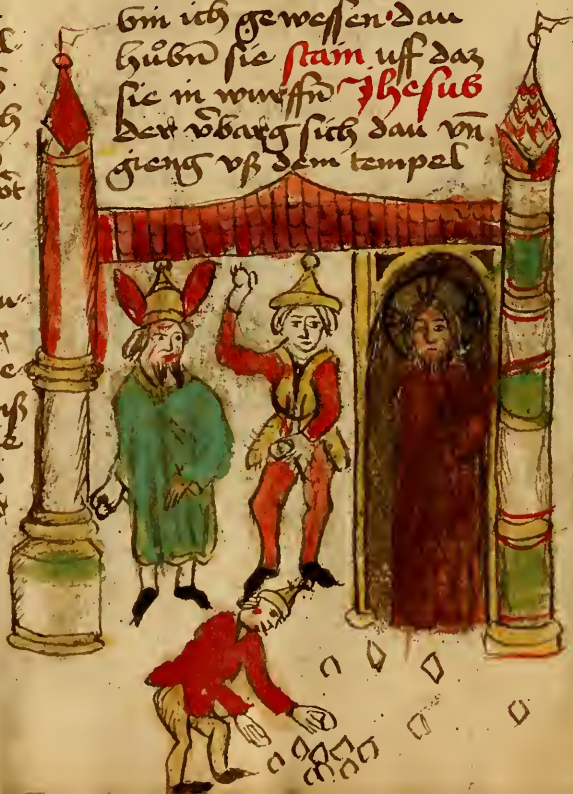 bin ich gewessen · dau
hůbn̄ sie stain uff daz
sie in wurffn̄ Jhesus
der v̄barg sich dau vn̄
gieng vß dem tempel